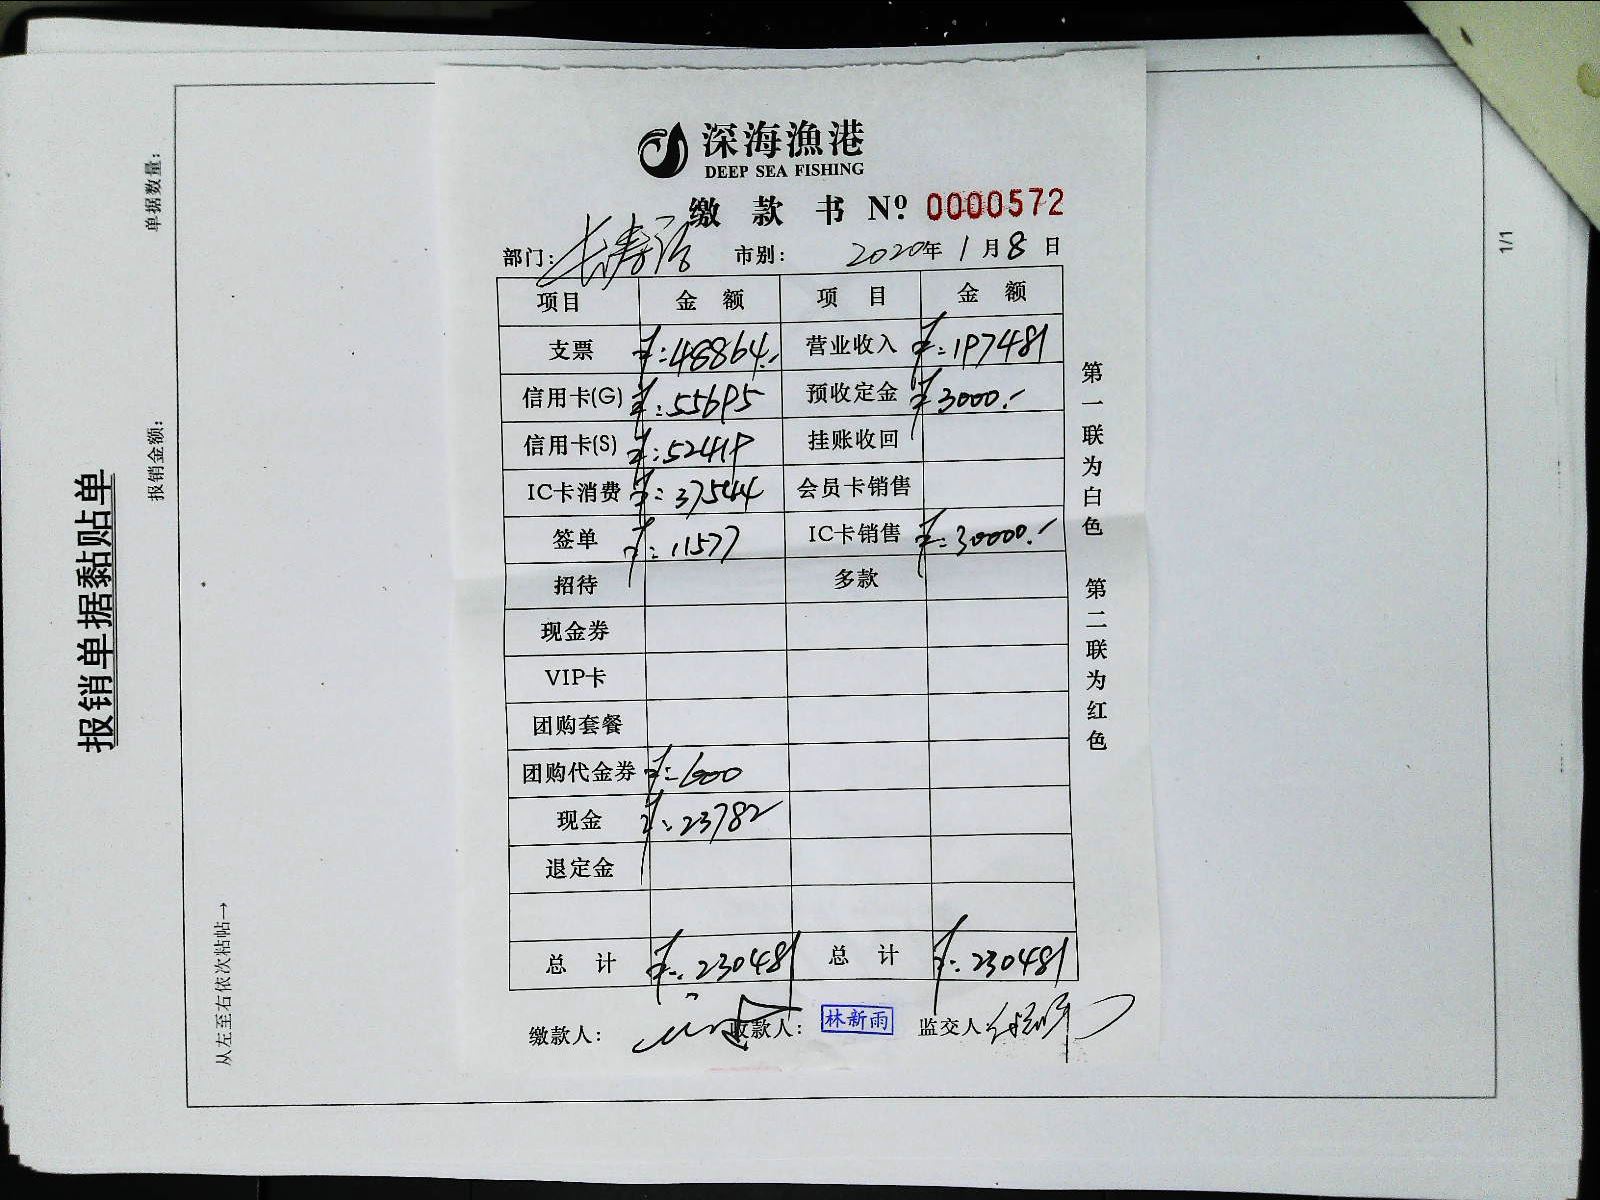 报销单据黏贴单
单据数量：
报销金额：
从左至右依次粘帖→
1/1
深海漁港
DEEP SEA FISHING
缴款书 Nº 0000572
部门：长寿路 市别： 2020年1月8日
项目 金额 项目 金额
支票 ¥:48864.- 营业收入 ¥:197481
信用卡(G) ¥:55695 预收定金 ¥3000.-
信用卡(S) ¥:52419 挂账收回
IC卡消费 ¥:37544 会员卡销售
签单 ¥:11577 IC卡销售 ¥:30000.-
招待 多款
现金券
VIP卡
团购套餐
团购代金券 ¥:600
现金 ¥:23782
退定金
总计 ¥:230481 总计 ¥:230481
缴款人： 收款人：林新雨 监交人
第一联为白色 第二联为红色